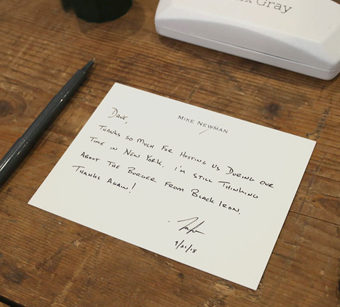 Gray
MIKE NEWMAN
DAVE,
THANKS SO MUCH FOR HOSTING US DURING OUR
TIME IN NEW YORK. I'M STILL THINKING
ABOUT THE BURGER FROM BLACK IRON.
THANKS AGAIN!